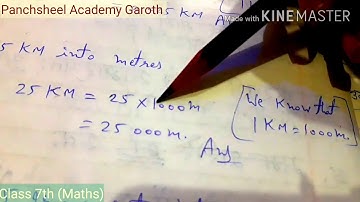 Panchsheel Academy Garoth
Made with KINEMASTER
5 KM into metres
25 KM = 25 × 1000m
= 25 000m.
Ans
[We Know that
1 KM = 1000m.]
Class 7th (Maths)